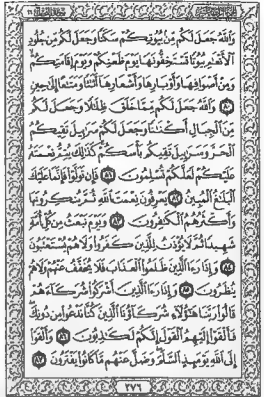 وَاللَّهُ جَعَلَ لَكُم مِّنۢ بُيُوتِكُمْ سَكَنًا وَجَعَلَ لَكُم مِّن جُلُودِ
الْأَنْعَٰمِ بُيُوتًا تَسْتَخِفُّونَهَا يَوْمَ ظَعْنِكُمْ وَيَوْمَ إِقَامَتِكُمْ
وَمِنْ أَصْوَافِهَا وَأَوْبَارِهَا وَأَشْعَارِهَا أَثَٰثًا وَمَتَٰعًا إِلَىٰ حِينٍ
٨٠ وَاللَّهُ جَعَلَ لَكُم مِّمَّا خَلَقَ ظِلَٰلًا وَجَعَلَ لَكُم
مِّنَ الْجِبَالِ أَكْنَٰنًا وَجَعَلَ لَكُمْ سَرَٰبِيلَ تَقِيكُمُ
الْحَرَّ وَسَرَٰبِيلَ تَقِيكُم بَأْسَكُمْ كَذَٰلِكَ يُتِمُّ نِعْمَتَهُۥ
عَلَيْكُمْ لَعَلَّكُمْ تُسْلِمُونَ ٨١ فَإِن تَوَلَّوْا فَإِنَّمَا عَلَيْكَ
الْبَلَٰغُ الْمُبِينُ ٨٢ يَعْرِفُونَ نِعْمَتَ اللَّهِ ثُمَّ يُنكِرُونَهَا
وَأَكْثَرُهُمُ الْكَٰفِرُونَ ٨٣ وَيَوْمَ نَبْعَثُ مِن كُلِّ أُمَّةٍ
شَهِيدًا ثُمَّ لَا يُؤْذَنُ لِلَّذِينَ كَفَرُوا وَلَا هُمْ يُسْتَعْتَبُونَ
٨٤ وَإِذَا رَءَا الَّذِينَ ظَلَمُوا الْعَذَابَ فَلَا يُخَفَّفُ عَنْهُمْ وَلَا هُمْ
يُنظَرُونَ ٨٥ وَإِذَا رَءَا الَّذِينَ أَشْرَكُوا شُرَكَاءَهُمْ
قَالُوا رَبَّنَا هَٰؤُلَاءِ شُرَكَاؤُنَا الَّذِينَ كُنَّا نَدْعُوا مِن دُونِكَ
فَأَلْقَوْا إِلَيْهِمُ الْقَوْلَ إِنَّكُمْ لَكَٰذِبُونَ ٨٦ وَأَلْقَوْا
إِلَى اللَّهِ يَوْمَئِذٍ السَّلَمَ وَضَلَّ عَنْهُم مَّا كَانُوا يَفْتَرُونَ ٨٧
٢٧٦